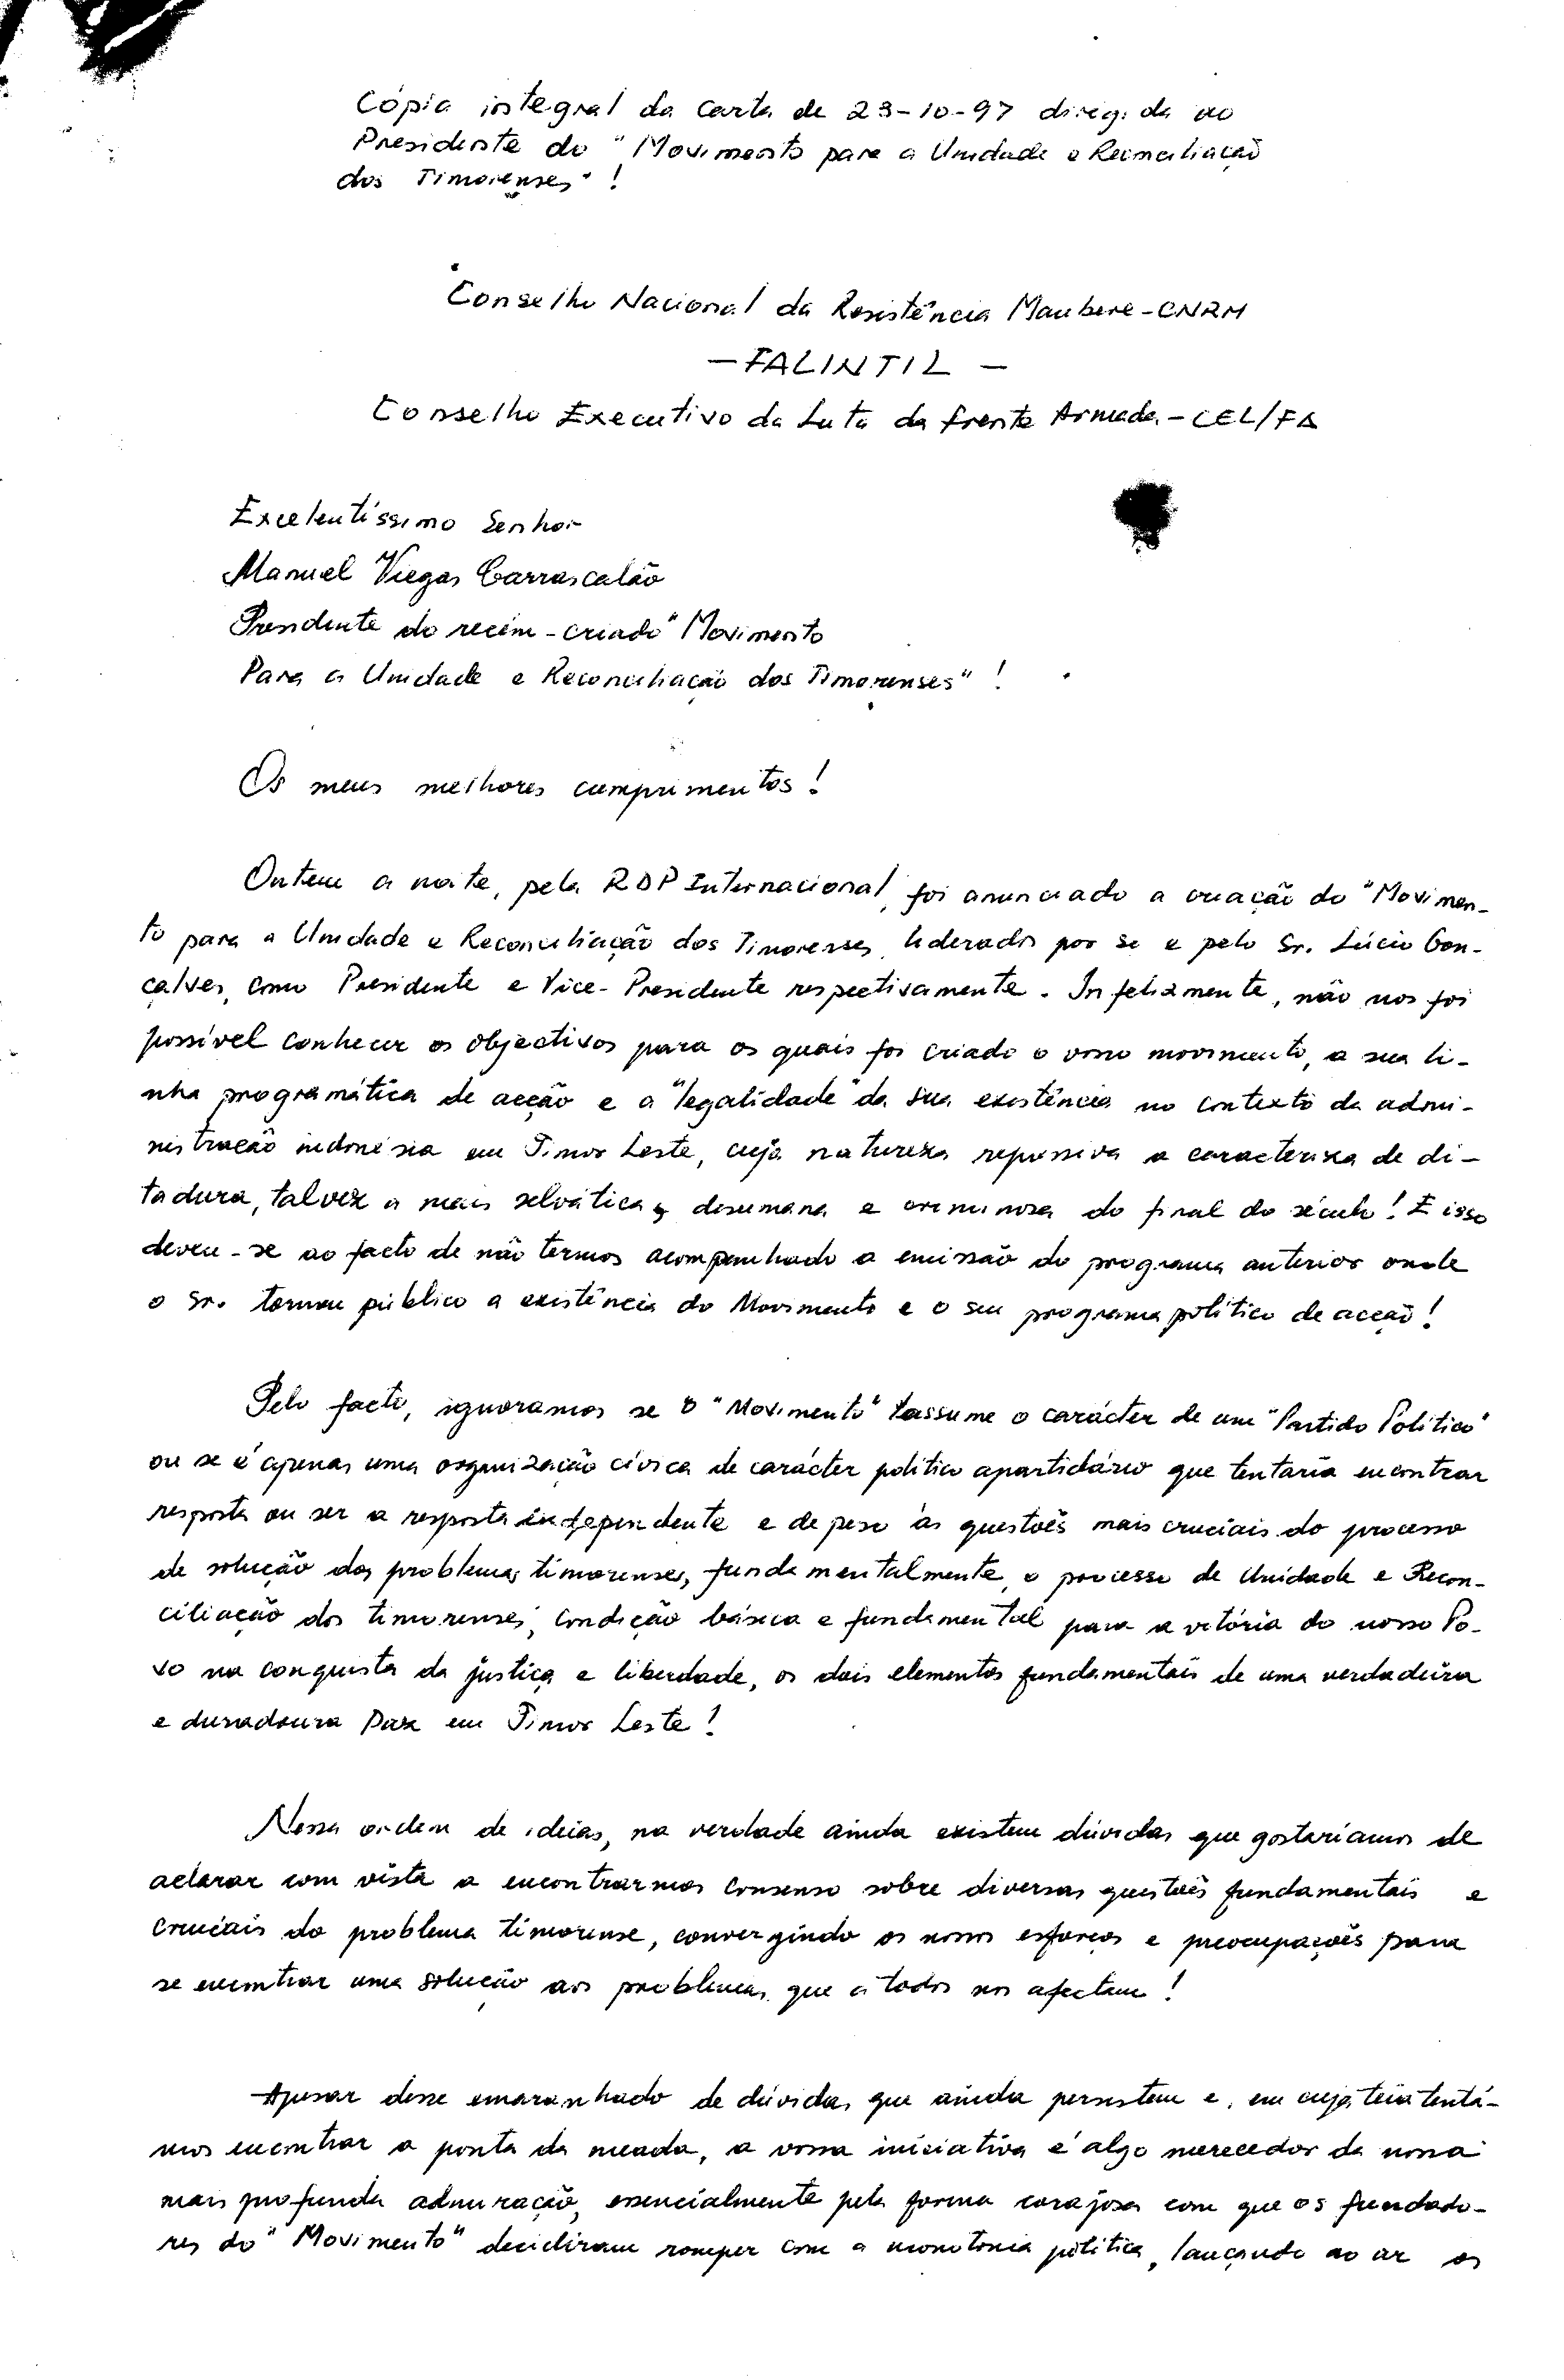 Cópia integral da carta de 23-10-97 dirigida ao
Presidente do "Movimento para a Unidade e Reconciliação
dos Timorenses" !
Conselho Nacional da Resistência Maubere - CNRM
— FALINTIL —
Conselho Executivo da Luta da Frente Armada - CEL/FA
Excelentíssimo Senhor
Manuel Viegas Carrascalão
Presidente do recém-criado "Movimento
Para a Unidade e Reconciliação dos Timorenses" !
Os meus melhores cumprimentos !
Ontem a noite, pela RDP Internacional, foi anunciado a criação do "Movimen-
to para a Unidade e Reconciliação dos Timorenses, liderado por si e pelo Sr. Lúcio Gon-
çalves, como Presidente e Vice-Presidente respectivamente. Infelizmente, não nos foi
possível conhecer os objectivos para os quais foi criado o vosso movimento, a sua li-
nha programática de acção e a "legalidade" da sua existência no contexto da admi-
nistração indonésia em Timor Leste, cuja natureza repressiva a caracteriza de di-
tadura, talvez a mais selvática, desumana e criminosa do final do século ! E isso
deveu-se ao facto de não termos acompanhado a emissão do programa anterior onde
o Sr. tornou público a existência do Movimento e o seu programa político de acção !
Pelo facto, ignoramos se o "Movimento" assume o carácter de um "Partido Político"
ou se é apenas uma organização cívica de carácter político apartidário que tentaria encontrar
resposta ou ser a resposta independente e de peso às questões mais cruciais do processo
de solução dos problemas timorenses, fundamentalmente, o processo de Unidade e Recon-
ciliação dos timorenses, condição básica e fundamental para a vitória do nosso Po-
vo na conquista da justiça e liberdade, os dois elementos fundamentais de uma verdadeira
e duradoura Paz em Timor Leste !
Nessa ordem de ideias, na verdade ainda existem dúvidas que gostaríamos de
aclarar com vista a encontrarmos consenso sobre diversas questões fundamentais e
cruciais do problema timorense, convergindo os nossos esforços e preocupações para
se encontrar uma solução aos problemas que a todos nos afectam !
Apesar desse emaranhado de dúvidas que ainda persistem e, em cuja teia tentá-
mos encontrar a ponta da meada, a vossa iniciativa é algo merecedor da nossa
mais profunda admiração, essencialmente pela forma corajosa com que os fundado-
res do "Movimento" decidiram romper com a monotonia política, lançando ao ar os